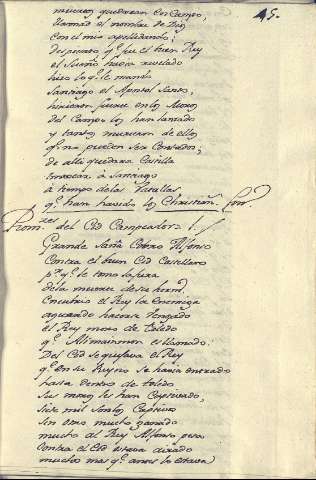 45.
murieron quedaran en Campo,
llamad el nombre de Dios
con el mio apellidando;
despierto q.e fue el buen Rey
el Sueño havia revelado
hizo lo q.e le mandó
Santiago el Apostol Santo,
hirieron fuerte en los Moros
del Campo los han lanzado
y tantos murieron de ellos
q.e no pueden ser Contados;
de alli quedara Castilla
invocar á Santiago
á tiempo de las Batallas
q.e han havido los Christian.s
Rom.ce del Cid Campeador
Grande Saña Cobro Alfonso
Contra el buen Cid Castellano
p.r q.e le tomo la jura
de la muerte de su herm.o
Encubrio el Rey la enemiga
aguardo hacerse vengado
el Rey moro de Toledo
q.e Alimaimon es llamado
Del Cid se quejava al Rey
q.e en su Reyno se havia entrado
hasta dentro de toledo
sus moros le han Captivado,
siete mil son los Captivos
sin otro mucho ganado
mucho al Rey Alfonso pesa
Contra el Cid estava airado
muchos mas q.e antes lo estava